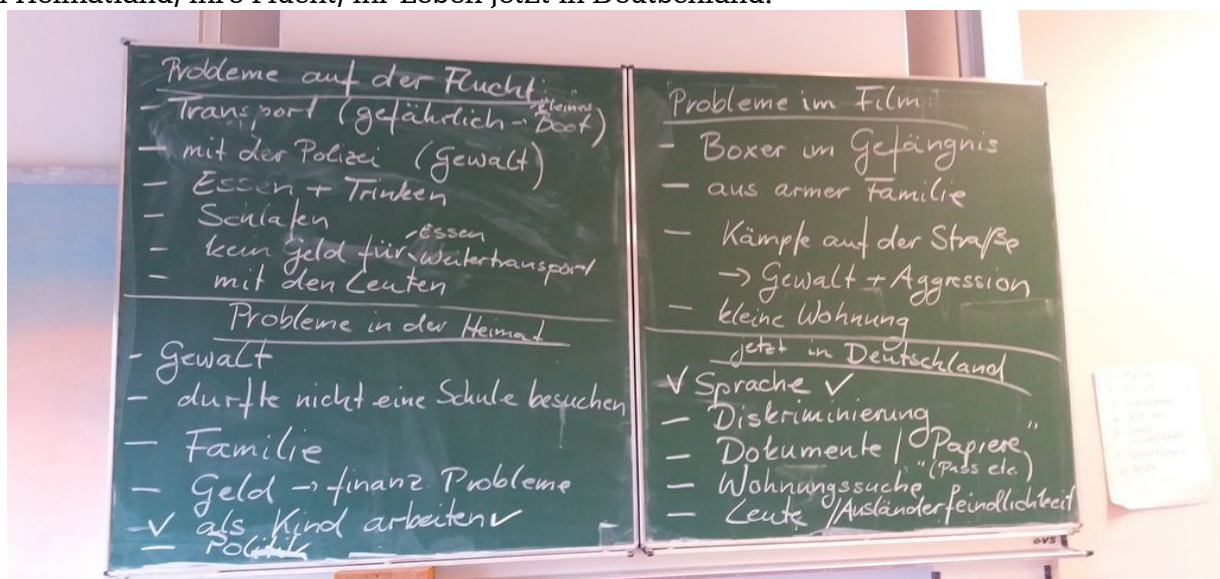 Heimatland, ihre Flucht, ihr Leben jetzt in Deutschland.
Probleme auf der Flucht:
- Transport (gefährlich → kleines Boot)
- mit der Polizei (Gewalt)
- Essen + Trinken
- Schlafen
- kein Geld für Essen, Weitertransport
- mit den Leuten
Probleme in der Heimat
- Gewalt
- durfte nicht eine Schule besuchen
- Familie
- Geld → finanz Probleme
√ als Kind arbeiten √
- Politik
Probleme im Film:
- Boxer im Gefängnis
- aus armer Familie
- Kämpfe auf der Straße
→ Gewalt + Aggression
- kleine Wohnung
jetzt in Deutschland
√ Sprache √
- Diskriminierung
- Dokumente / "Papiere"
(Pass etc.)
- Wohnungssuche
- Leute / Ausländerfeindlichkeit